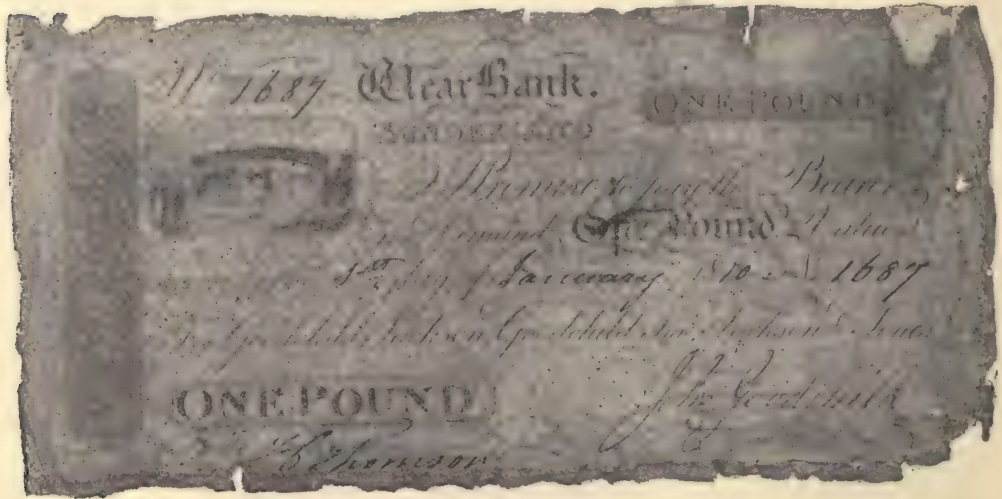 No 1687 Wear Bank. ONE POUND
SUNDERLAND
I Promise to pay the Bearer
on Demand, One Pound Value
1st day of January 1810 1687
Goodchild Jackson Goodchild Jackson
ONE POUND Jno Goodchild
Thomson